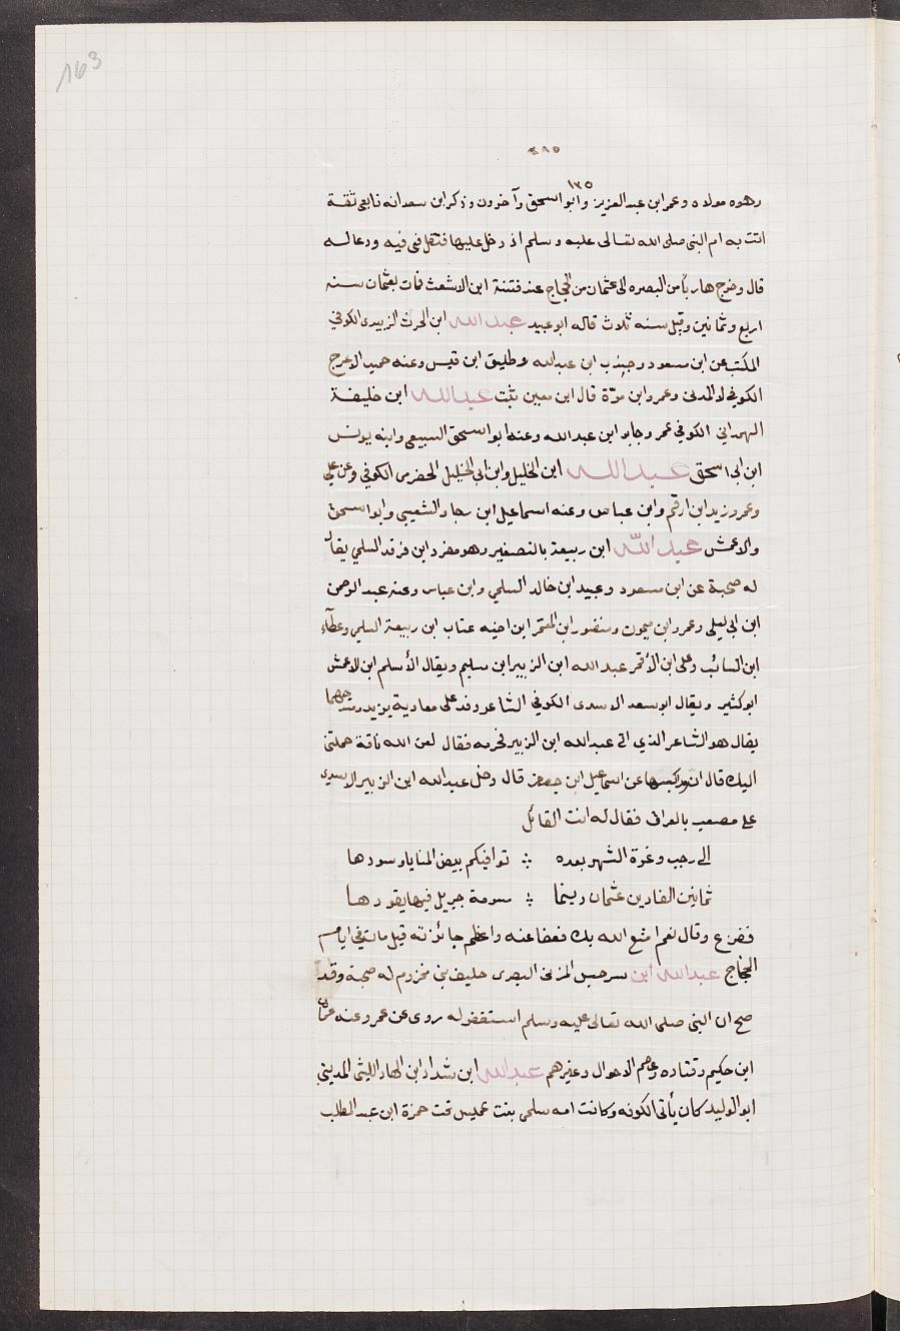 163
٤٨٥
١٢٥
وهوه مولاه وعمر ابن عبد العزيز وابو اسحق وآخرون وذكر ابن سعد انه تابعى ثقة
اتت به ام النبى صلى الله تعالى عليه وسلم اذ دخل عليها فتفل فى فيه ودعا له
قال وخرج هاربا من البصره الى عثمان من الحجاج عند فتنة ابن الاشعث فات بعثمان سنه
اربع وثمانين وقيل سنه ثلاث قاله ابو عبيد عبد الله ابن الحرث الزبيدى الكوفي
المكتب عن ابن مسعود وجندب ابن عبدالله وطليق ابن قيس وعنه حميد الاعرج
الكوفي لا المدنى وعمرو ابن مرّة قال ابن معين ثبت عبد الله ابن خليفة
الهمدانى الكوفى عمر وجابر ابن عبد الله وعنه ابو اسحق السبيعى وابنه يونس
ابن ابى اسحق عبد الله ابن الخليل وابن ابى الخليل الحضرمى الكوفي وعن علي
وعمر وزيد ابن ارقم وابن عباس وعنه اسماعيل ابن رجاء والشعبى وابو اسحق
والاعمش عبد الله ابن ربيعة بالتصغير وهو مفرد ابن فرقد السلمي يقال
له صحبة عن ابن مسعود وعبيد ابن خالد السلمي وابن عباس وعنه عبد الرحمن
ابن ابى ليلى وعمرو ابن ميمون ومنصور ابن المعتمر ابن اخيه عتاب ابن ربيعة السلمى وعطآء
ابن السائب وعلى ابن الاقمر عبد الله ابن الزبير ابن سليم ويقال الأسلم ابن الاعمش
ابو كثير ويقال ابو سعد الاسدى الكوفي الشاعر وفد على معاوية يزيد
يقال هو الشاعر الذي اتى عبد الله ابن الزبير فحرمه فقال لعن الله ناقة حملتنى
اليك قال ان وركبها عن اسماعيل ابن جعفر قال دخل عبد الله ابن الزبير الاسدى
على مصعب بالعراق فقال له انت القائل
الى رجب وغرة الشهر بعده ∴ توافيكم بيض المنايا وسودها
ثمانين الفا دين عثمان دينها ∴ مسومة جبريل فيها يقودها
ففزع وقال نعم امتع الله بك فعفا عنه واعظم جائزته قيل مات في ايام
الحجاج عبد الله ابن سرجس المزنى البصرى حليف بنى مخزوم له صحبة وقد
صح ان النبى صلى الله تعالى عليه وسلم استغفر له روى عن عمر وعنه عثمان
ابن حكيم وقتاده وعاصم الاحوال وغيرهم عبد الله ابن شداد ابن الهاد الليثى المدينى
ابو الوليد كان يأتى الكوفه وكانت امه سلمى بنت عميس تحت حمزة ابن عبد المطلب